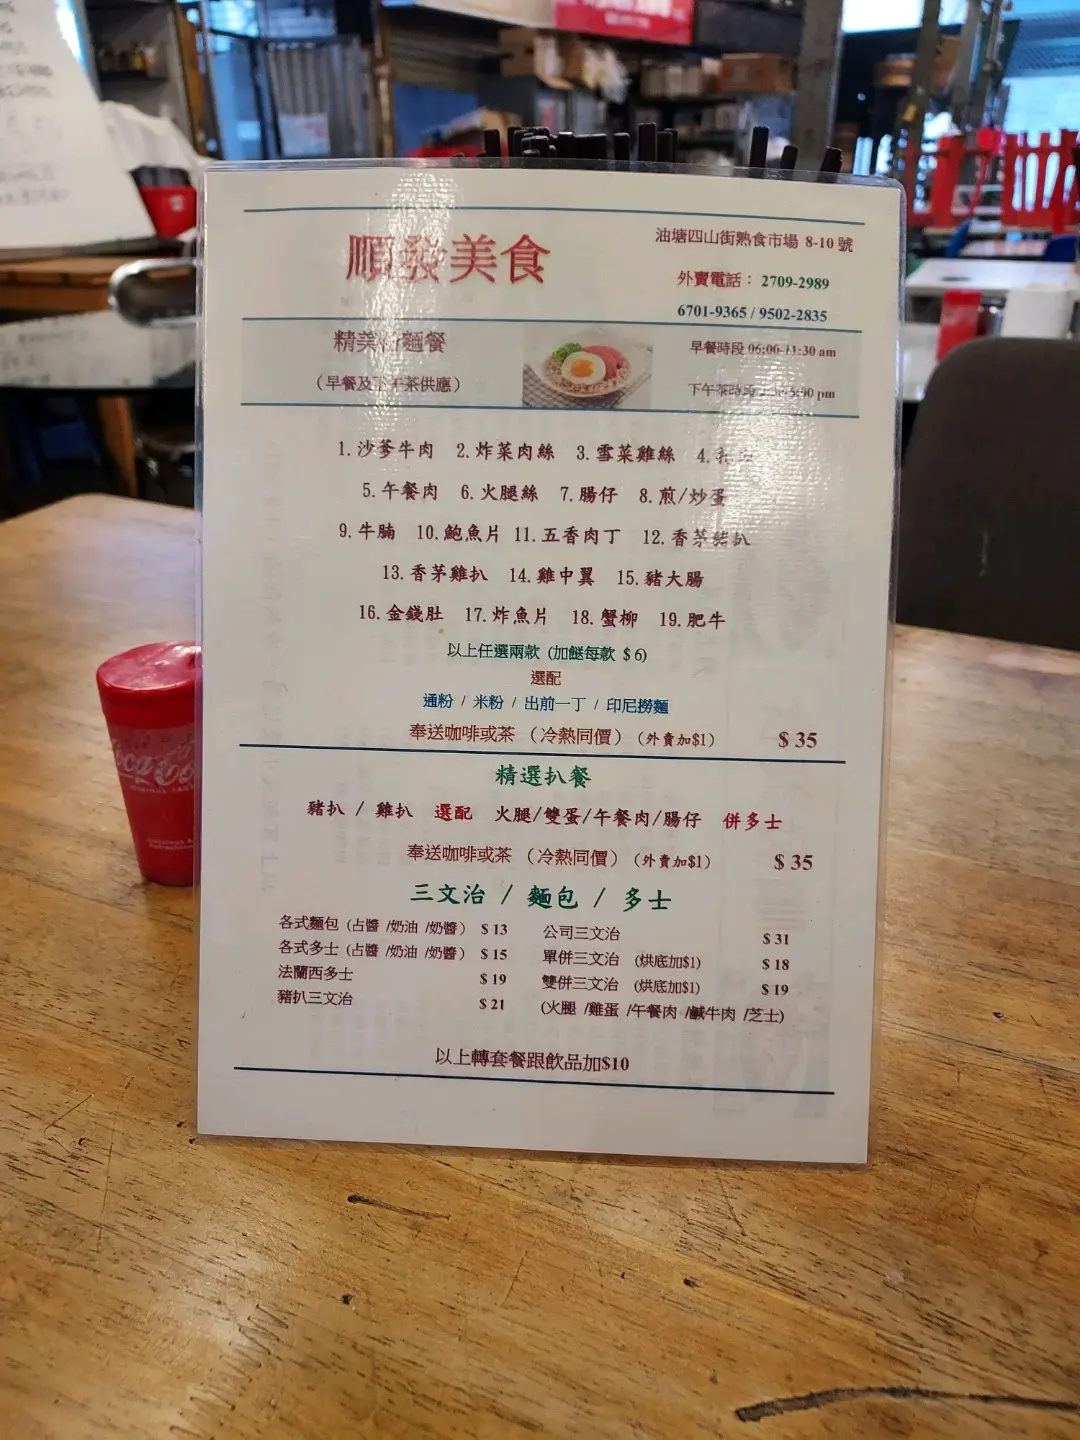 順發美食
油塘四山街熟食市場 8-10 號
外賣電話： 2709-2989
6701-9365 / 9502-2835
精美 麵餐
（早餐及下午茶供應）
早餐時段 06:00-11:30 am
下午茶時 pm
1.沙爹牛肉 2.炸菜肉絲 3.雪菜雞絲 4.
5.午餐肉 6.火腿絲 7.腸仔 8.煎/炒蛋
9.牛腩 10.鮑魚片 11.五香肉丁 12.香茅豬扒
13.香茅雞扒 14.雞中翼 15.豬大腸
16.金錢肚 17.炸魚片 18.蟹柳 19.肥牛
以上任選兩款 (加餸每款 $ 6)
選配
通粉 / 米粉 / 出前一丁 / 印尼撈麵
奉送咖啡或茶 （冷熱同價）（外賣加$1） $ 35
精選扒餐
豬扒 / 雞扒 選配 火腿/雙蛋/午餐肉/腸仔 併多士
奉送咖啡或茶 （冷熱同價）（外賣加$1） $ 35
三文治 / 麵包 / 多士
各式麵包 (占醬 /奶油 /奶醬） $ 13
各式多士 (占醬 /奶油 /奶醬） $ 15
法蘭西多士 $ 19
豬扒三文治 $ 21
公司三文治 $ 31
單併三文治 (烘底加$1) $ 18
雙併三文治 (烘底加$1) $ 19
(火腿 /雞蛋 /午餐肉 /鹹牛肉 /芝士)
以上轉套餐跟飲品加$10